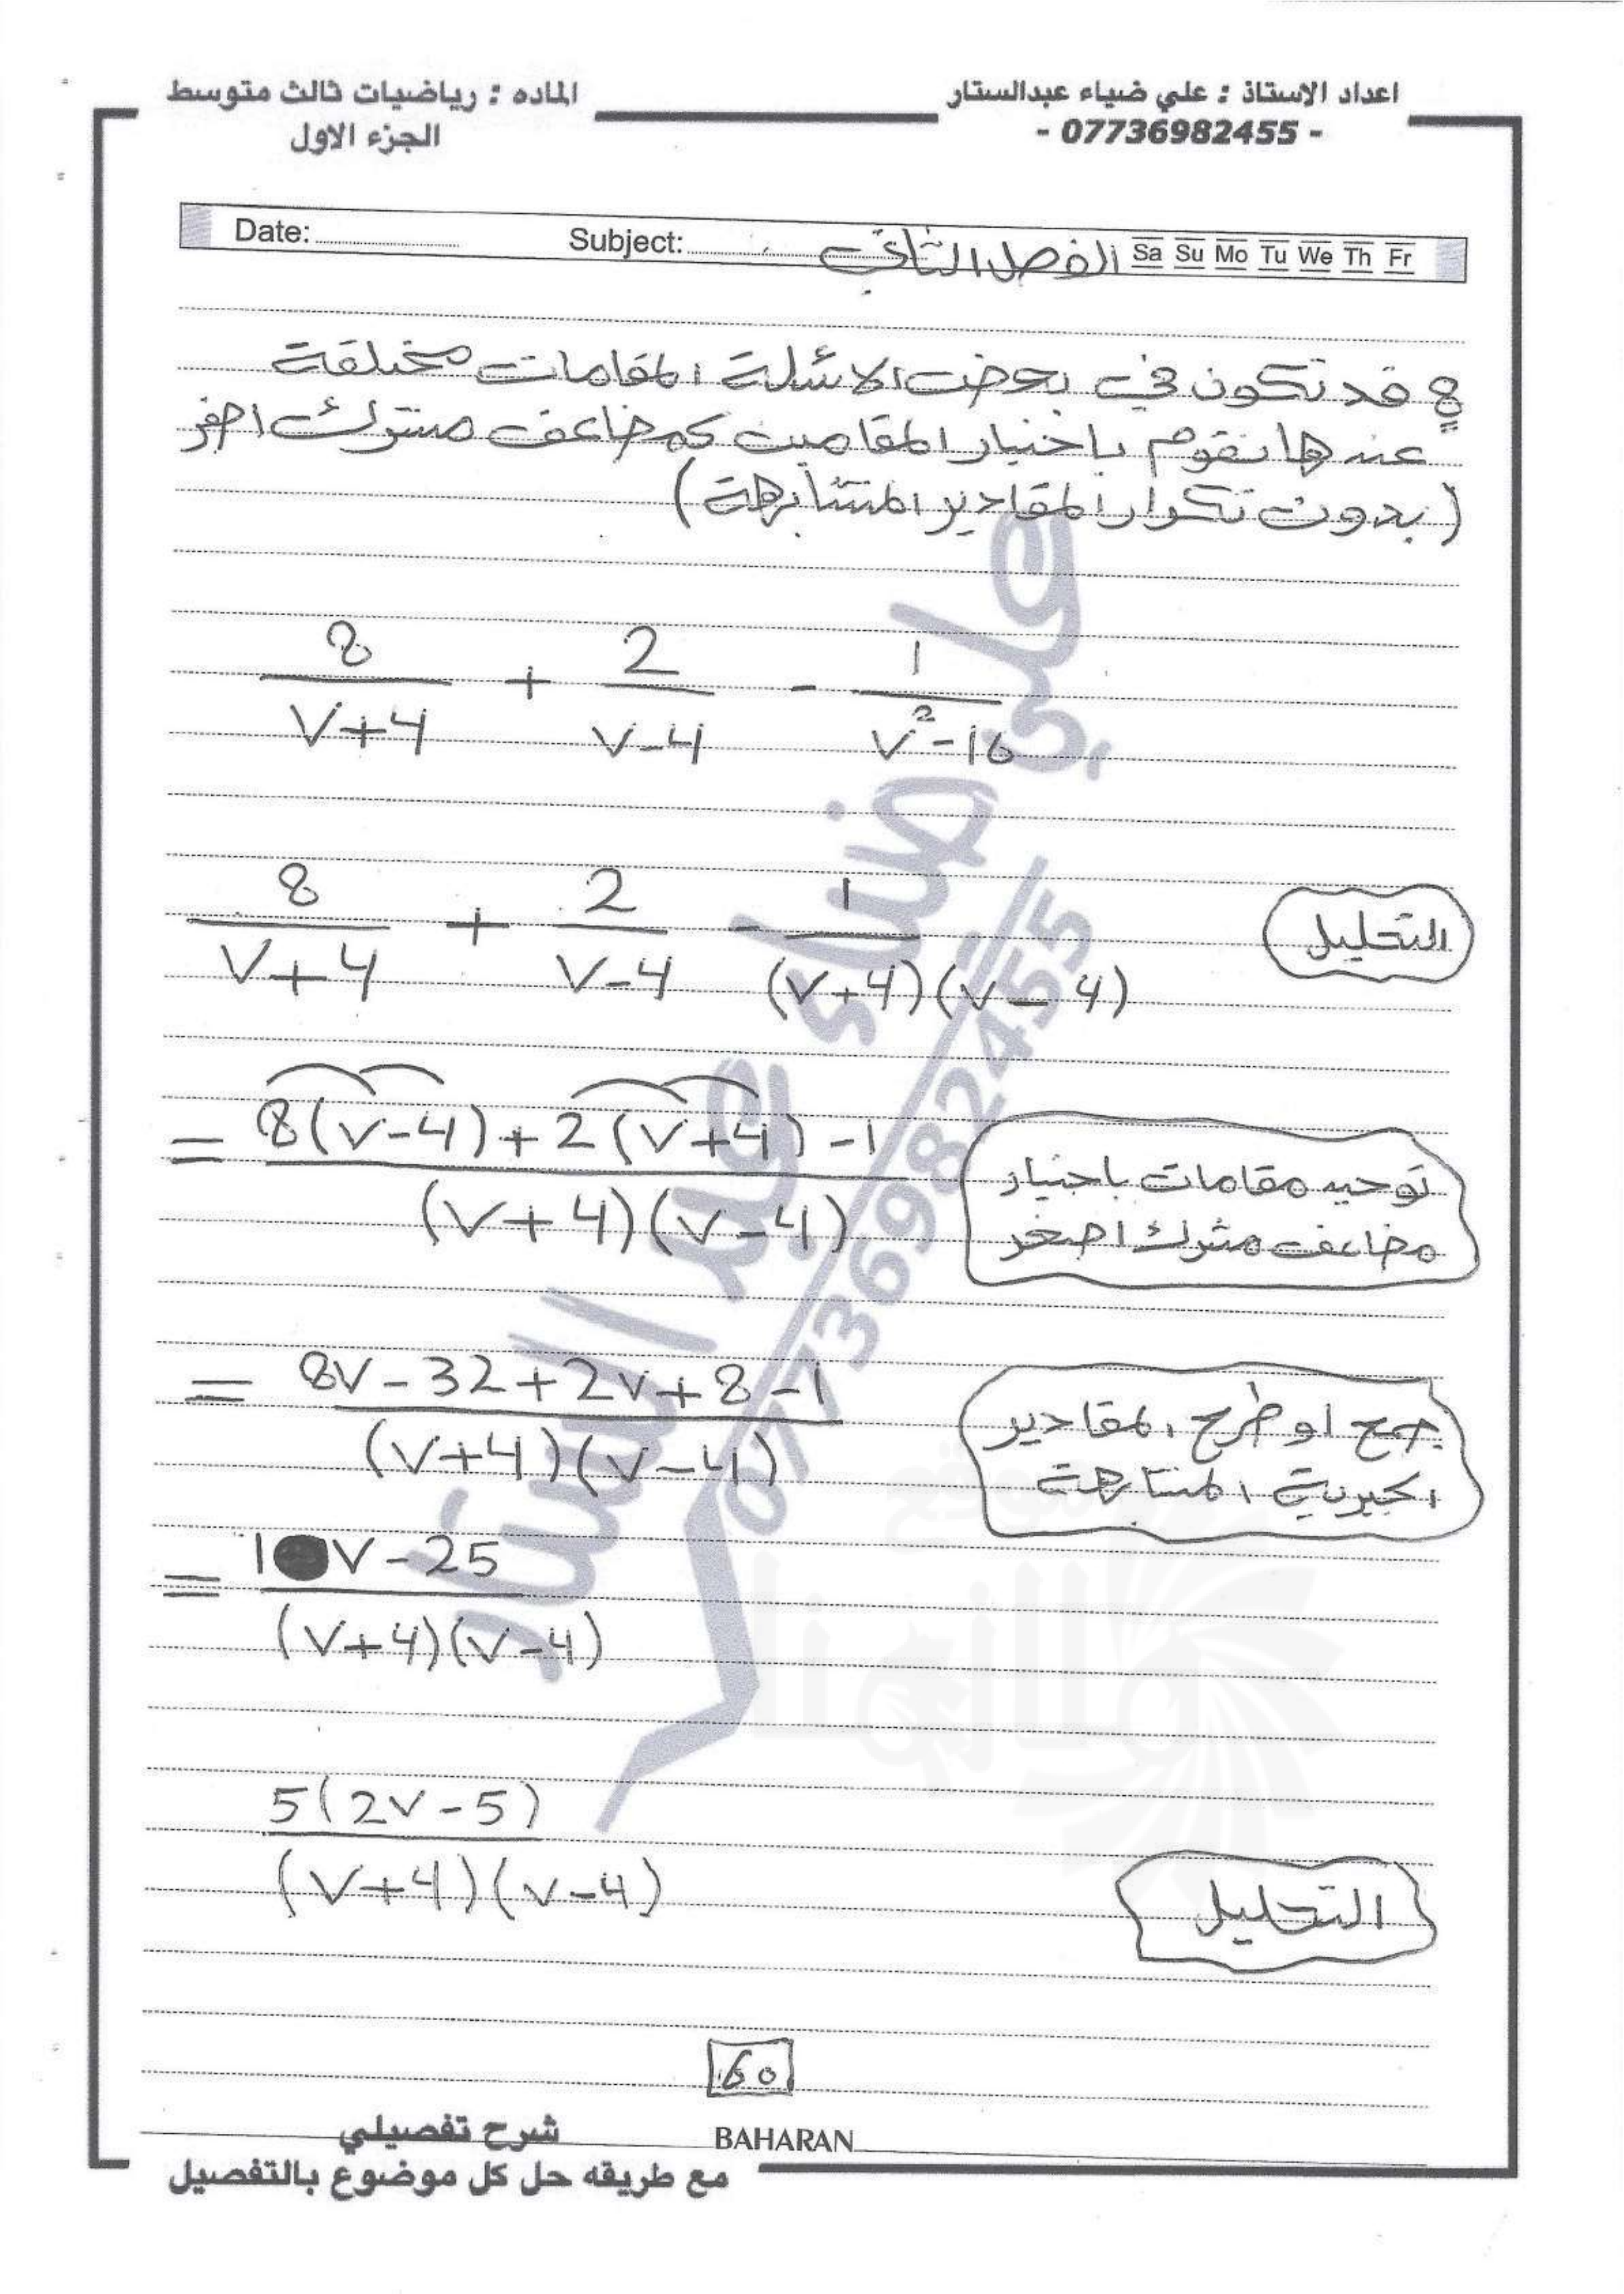 اعداد الاستاذ : علي ضياء عبدالستار
- 07736982455 -
الماده : رياضيات ثالث متوسط
الجزء الاول
Date: Subject: الفصل الثاني Sa Su Mo Tu We Th Fr
8 قد تكون في بعض الاسئلة المقامات مختلفة
عندها نقوم باختيار المقامين كمضاعف مشترك اصغر
(بدون تكرار المقادير المتشابهة)
8/(V+4) + 2/(V-4) - 1/(V²-16)
8/(V+4) + 2/(V-4) - 1/((V+4)(V-4)) التحليل
= (8(V-4)+2(V+4)-1)/((V+4)(V-4))
توحيد مقامات باختيار
مضاعف مشترك اصغر
= (8V-32+2V+8-1)/((V+4)(V-4))
جمع او طرح المقادير
الجبرية المتشابهة
= (10V-25)/((V+4)(V-4))
5(2V-5)/((V+4)(V-4)) التحليل
60
BAHARAN
شرح تفصيلي
مع طريقه حل كل موضوع بالتفصيل
علي ضياء عبد الستار
07736982455